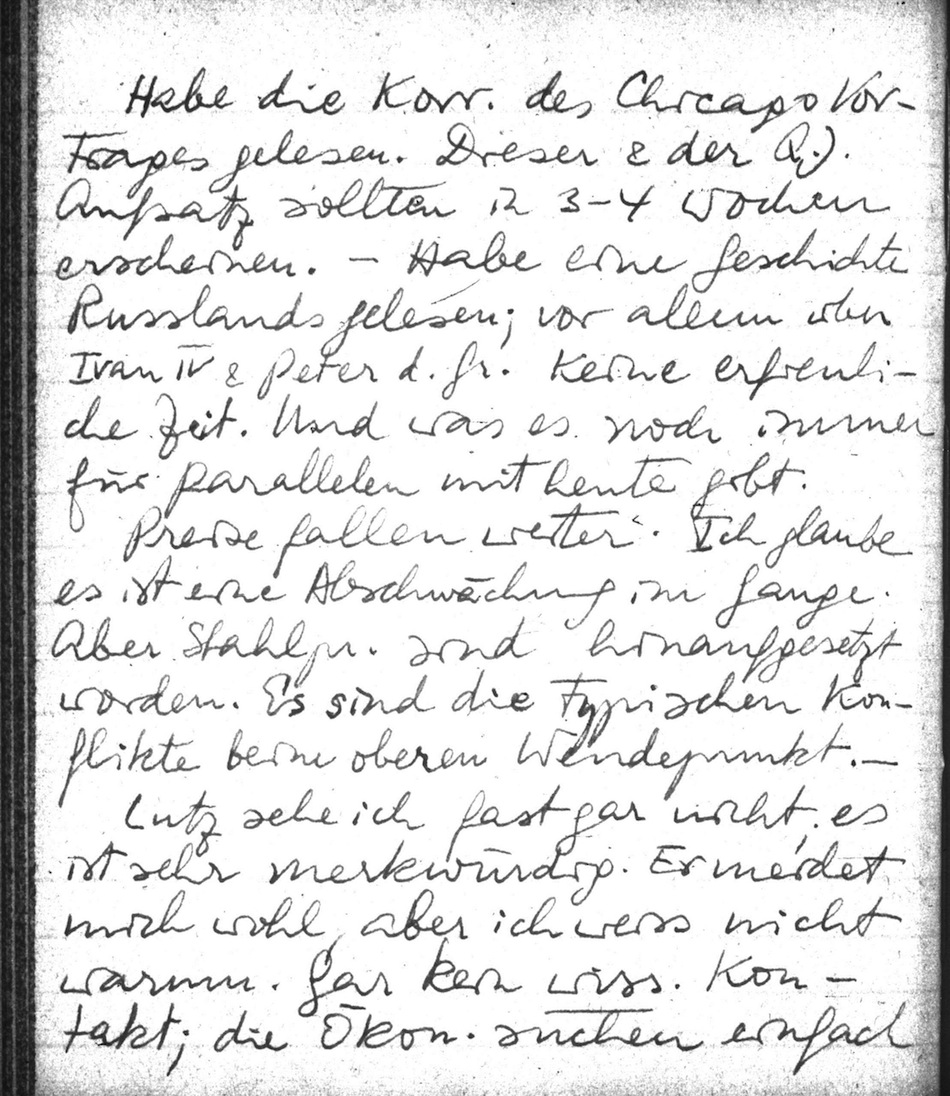 Habe die Korr. des Chicago Vor-
trages gelesen. Dieser & der Q.J.
Aufsatz sollten in 3-4 Wochen
erscheinen. - Habe eine Geschichte
Russlands gelesen; vor allem über
Ivan IV & Peter d. Gr. Keine erfreuli-
che Zeit. Und was es noch immer
für Parallelen mit heute gibt.
Preise fallen weiter. Ich glaube
es ist eine Abschwächung im Gange.
Aber Stahlpr. sind hinaufgesetzt
worden. Es sind die typischen Kon-
flikte beim oberen Wendepunkt. -
Lutz sehe ich fast gar nicht, es
ist sehr merkwürdig. Er meidet
mich wohl, aber ich weiss nicht
warum. Gar kein wiss. Kon-
takt; die Ökon. suchen einfach